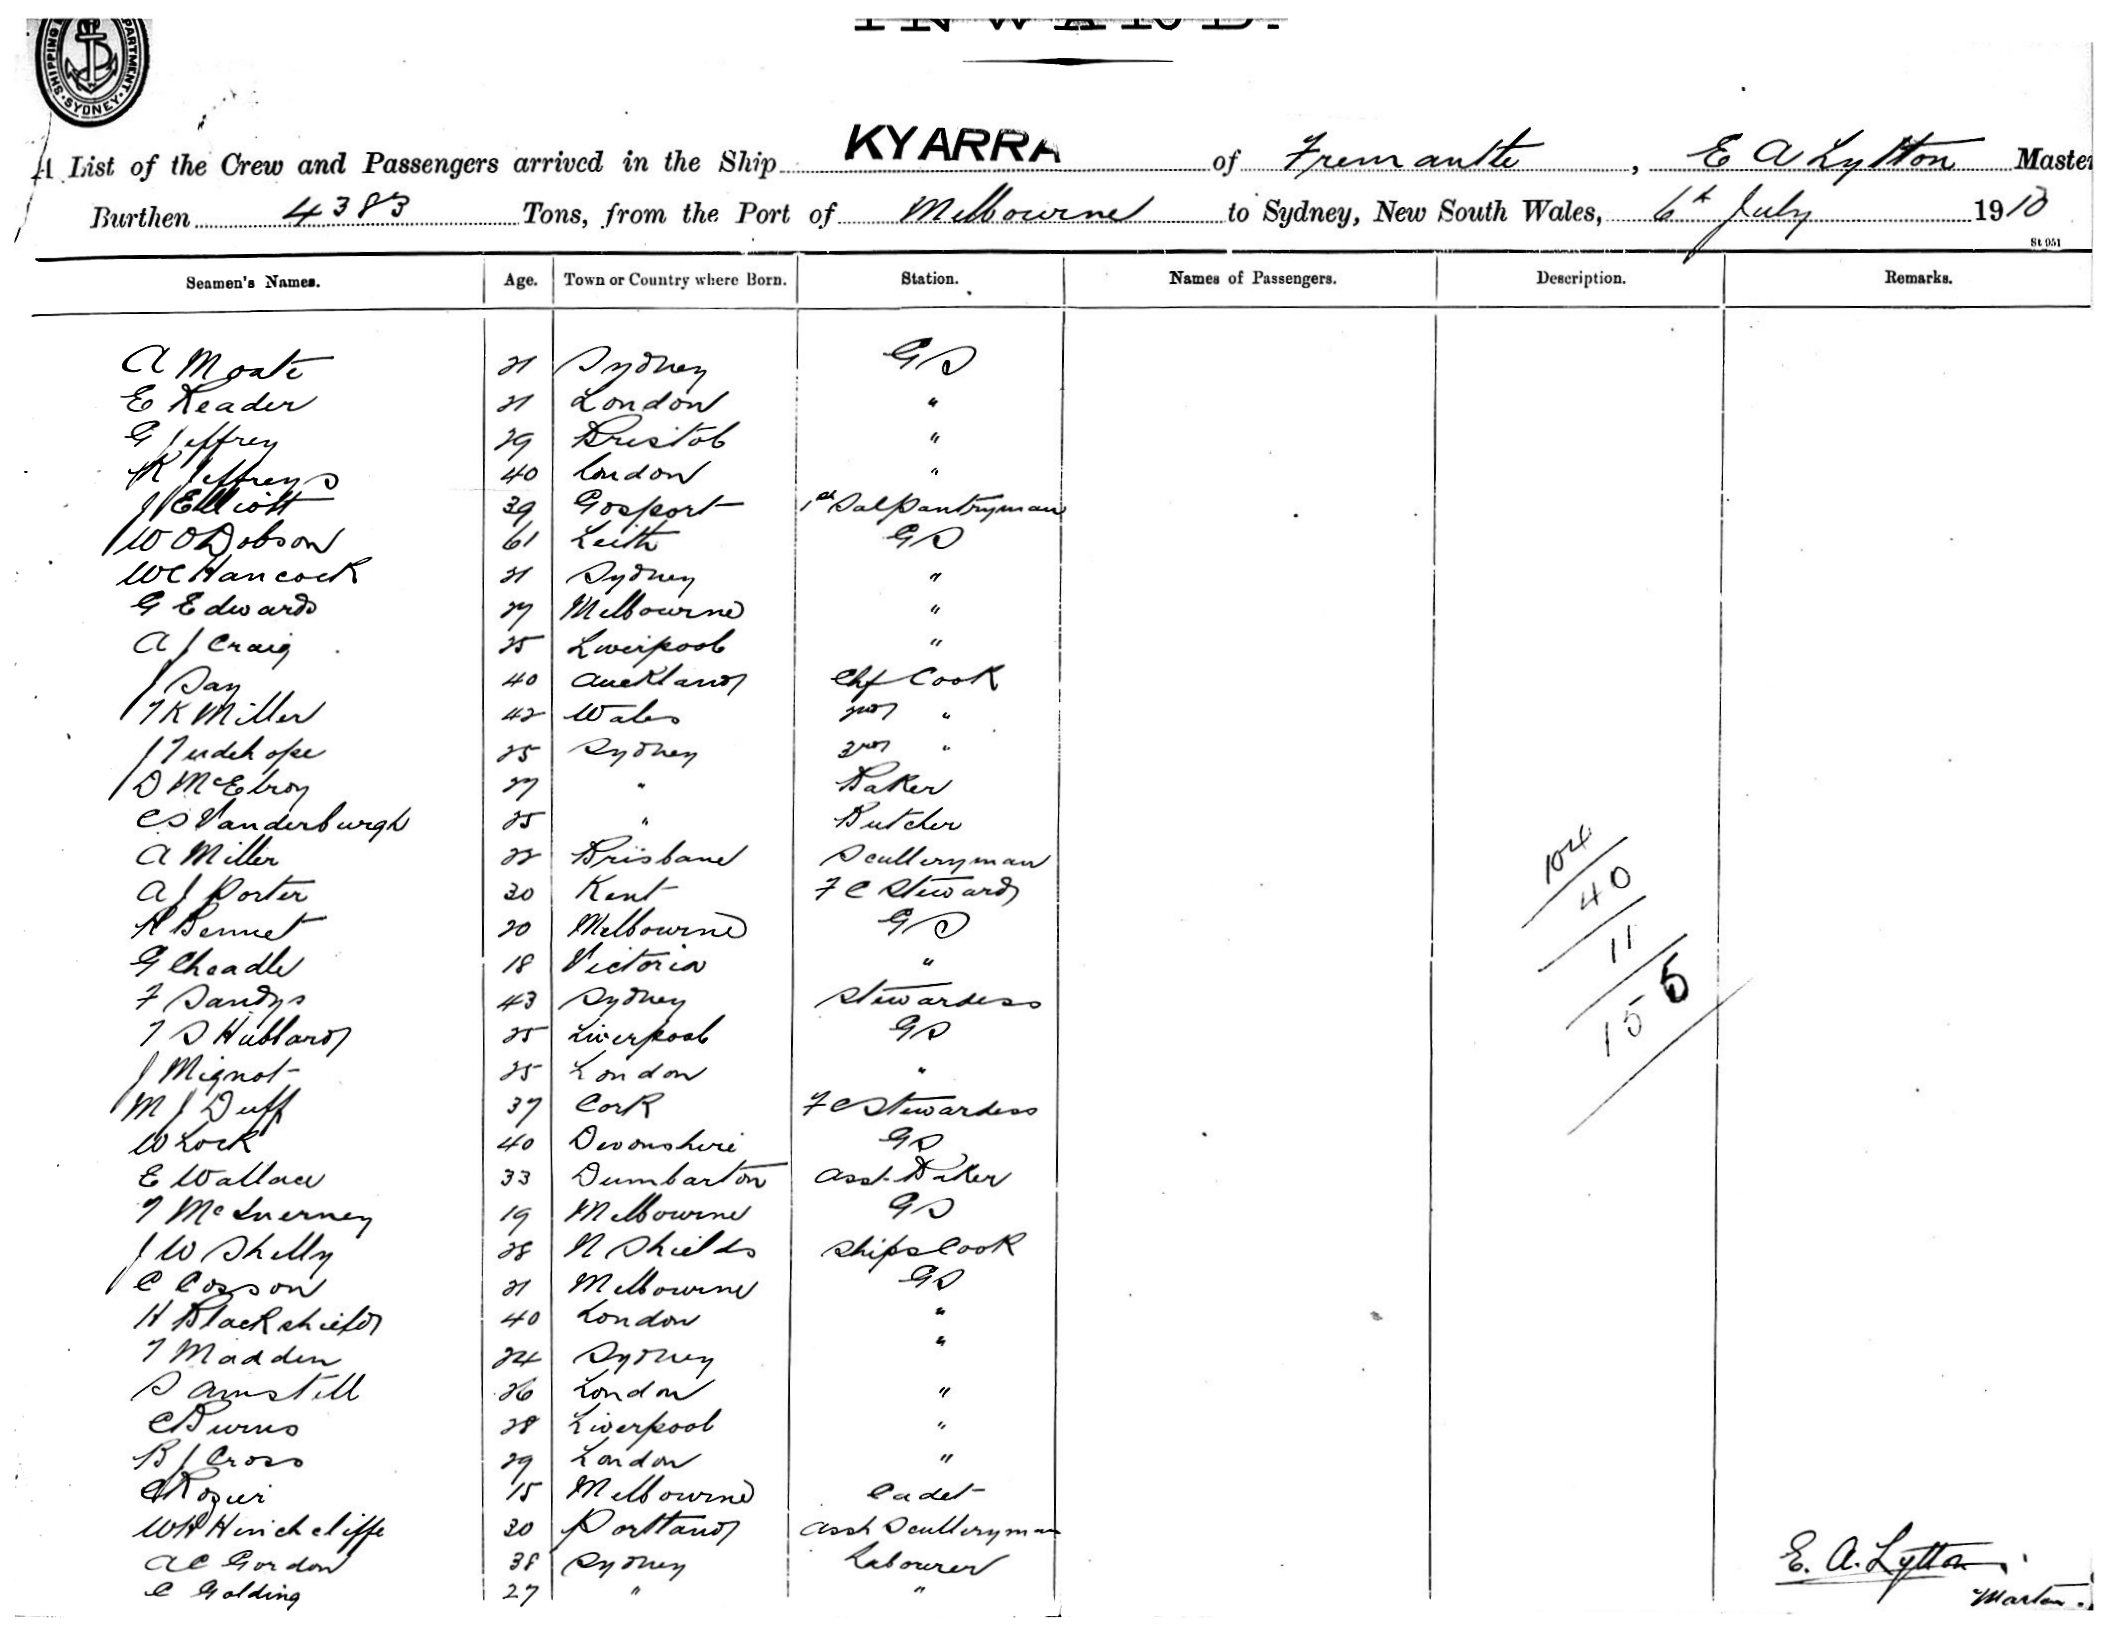 SHIPPING DEPARTMENT SYDNEY
INWARD.
A List of the Crew and Passengers arrived in the Ship KYARRA of Fremantle, E A Lytton Master
Burthen 4383 Tons, from the Port of Melbourne to Sydney, New South Wales, 6th July 1910
St 951
Seamen's Names. Age. Town or Country where Born. Station. Names of Passengers. Description. Remarks.
A Moate 21 Sydney GS
E Reader 21 London "
G Jeffrey 29 Bristol "
R Jeffreys 40 London "
J Elliott 39 Gosport 1st Sal Pantryman
W O Dobson 61 Leith GS
W C Hancock 21 Sydney "
G Edwards 27 Melbourne "
A J Craig 25 Liverpool "
J Day 40 Auckland Chf Cook
T K Miller 42 Wales 2nd "
J Tudehope 25 Sydney 3rd "
D McElroy 27 " Baker
C S Vanderburgh 25 " Butcher
A Miller 22 Brisbane Sculleryman
A J Porter 30 Kent F C Steward
H Bennet 20 Melbourne GS
G Cheadle 18 Victoria "
F Sandys 43 Sydney Stewardess
T S Hubbard 25 Liverpool GS
J Mignot 25 London "
M J Duff 37 Cork F C Stewardess
W Lock 40 Devonshire GS
E Wallace 33 Dumbarton Asst Baker
T McInerney 19 Melbourne GS
J W Shelly 28 N Shields Ships Cook
C Cosson 21 Melbourne GS
H Blackshield 40 London "
T Madden 24 Sydney "
S Amstell 26 London "
C Burns 28 Liverpool "
B J Cross 29 London "
C Rozier 15 Melbourne Cadet
W H Hinchcliffe 30 Portland Asst Sculleryman
A C Gordon 38 Sydney Labourer
C Golding 27 " "
104
40
11
155
E. A. Lytton
Master.